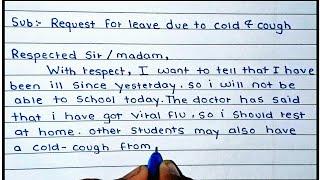 Sub:- Request for leave due to cold & cough
Respected Sir/madam,
With respect, I want to tell that I have
been ill since yesterday. so i will not be
able to school today. The doctor has said
that i have got viral flu. so i should rest
at home. other students may also have
a cold-cough from